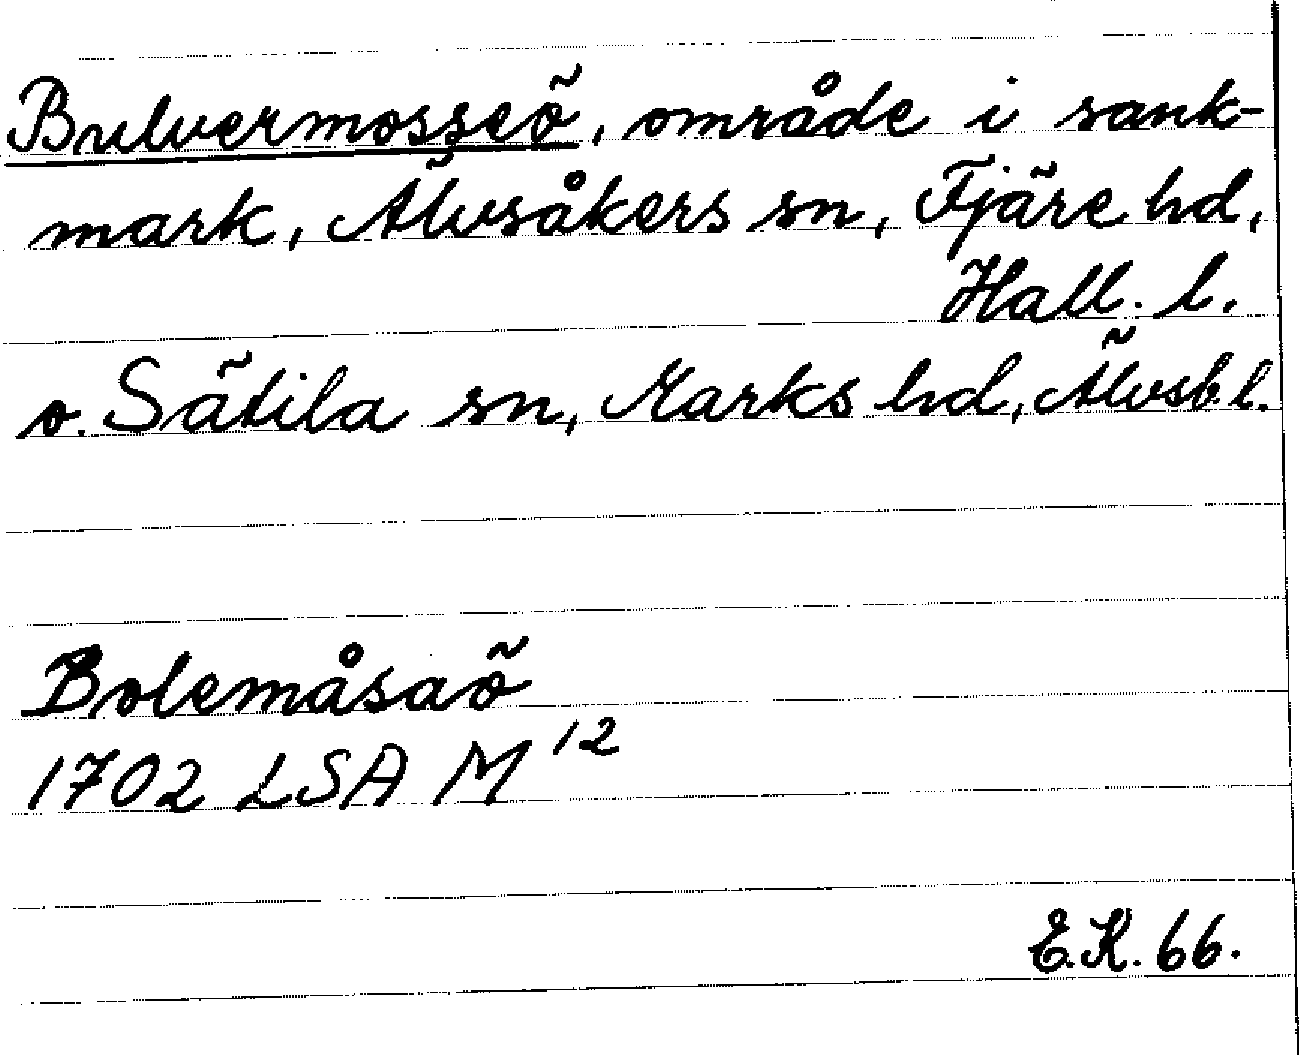 Bulvermosseö, område i sank-
mark, Älvsåkers sn, Fjäre hd,
Hall. l.
o. Sätila sn, Marks hd, Älvsb. l.
Bolemåsaö
1702 LSA M 12
E.K. 66.